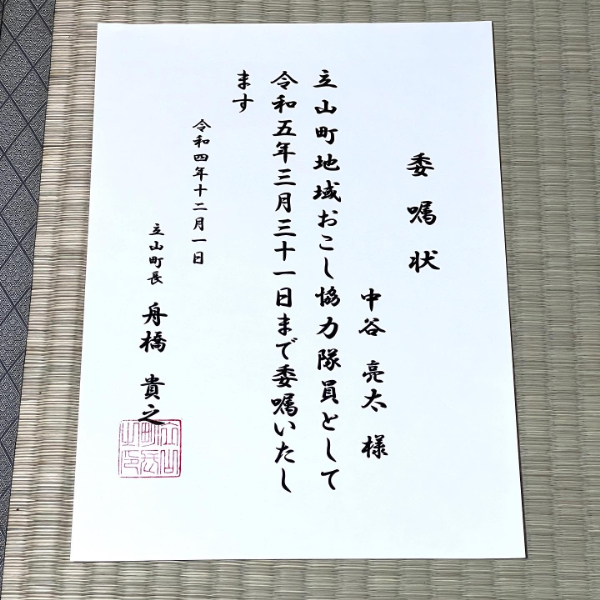 委嘱状
中谷 亮太 様
立山町地域おこし協力隊員として
令和五年三月三十一日まで委嘱いたし
ます
令和四年十二月一日
立山町長 舟橋 貴之